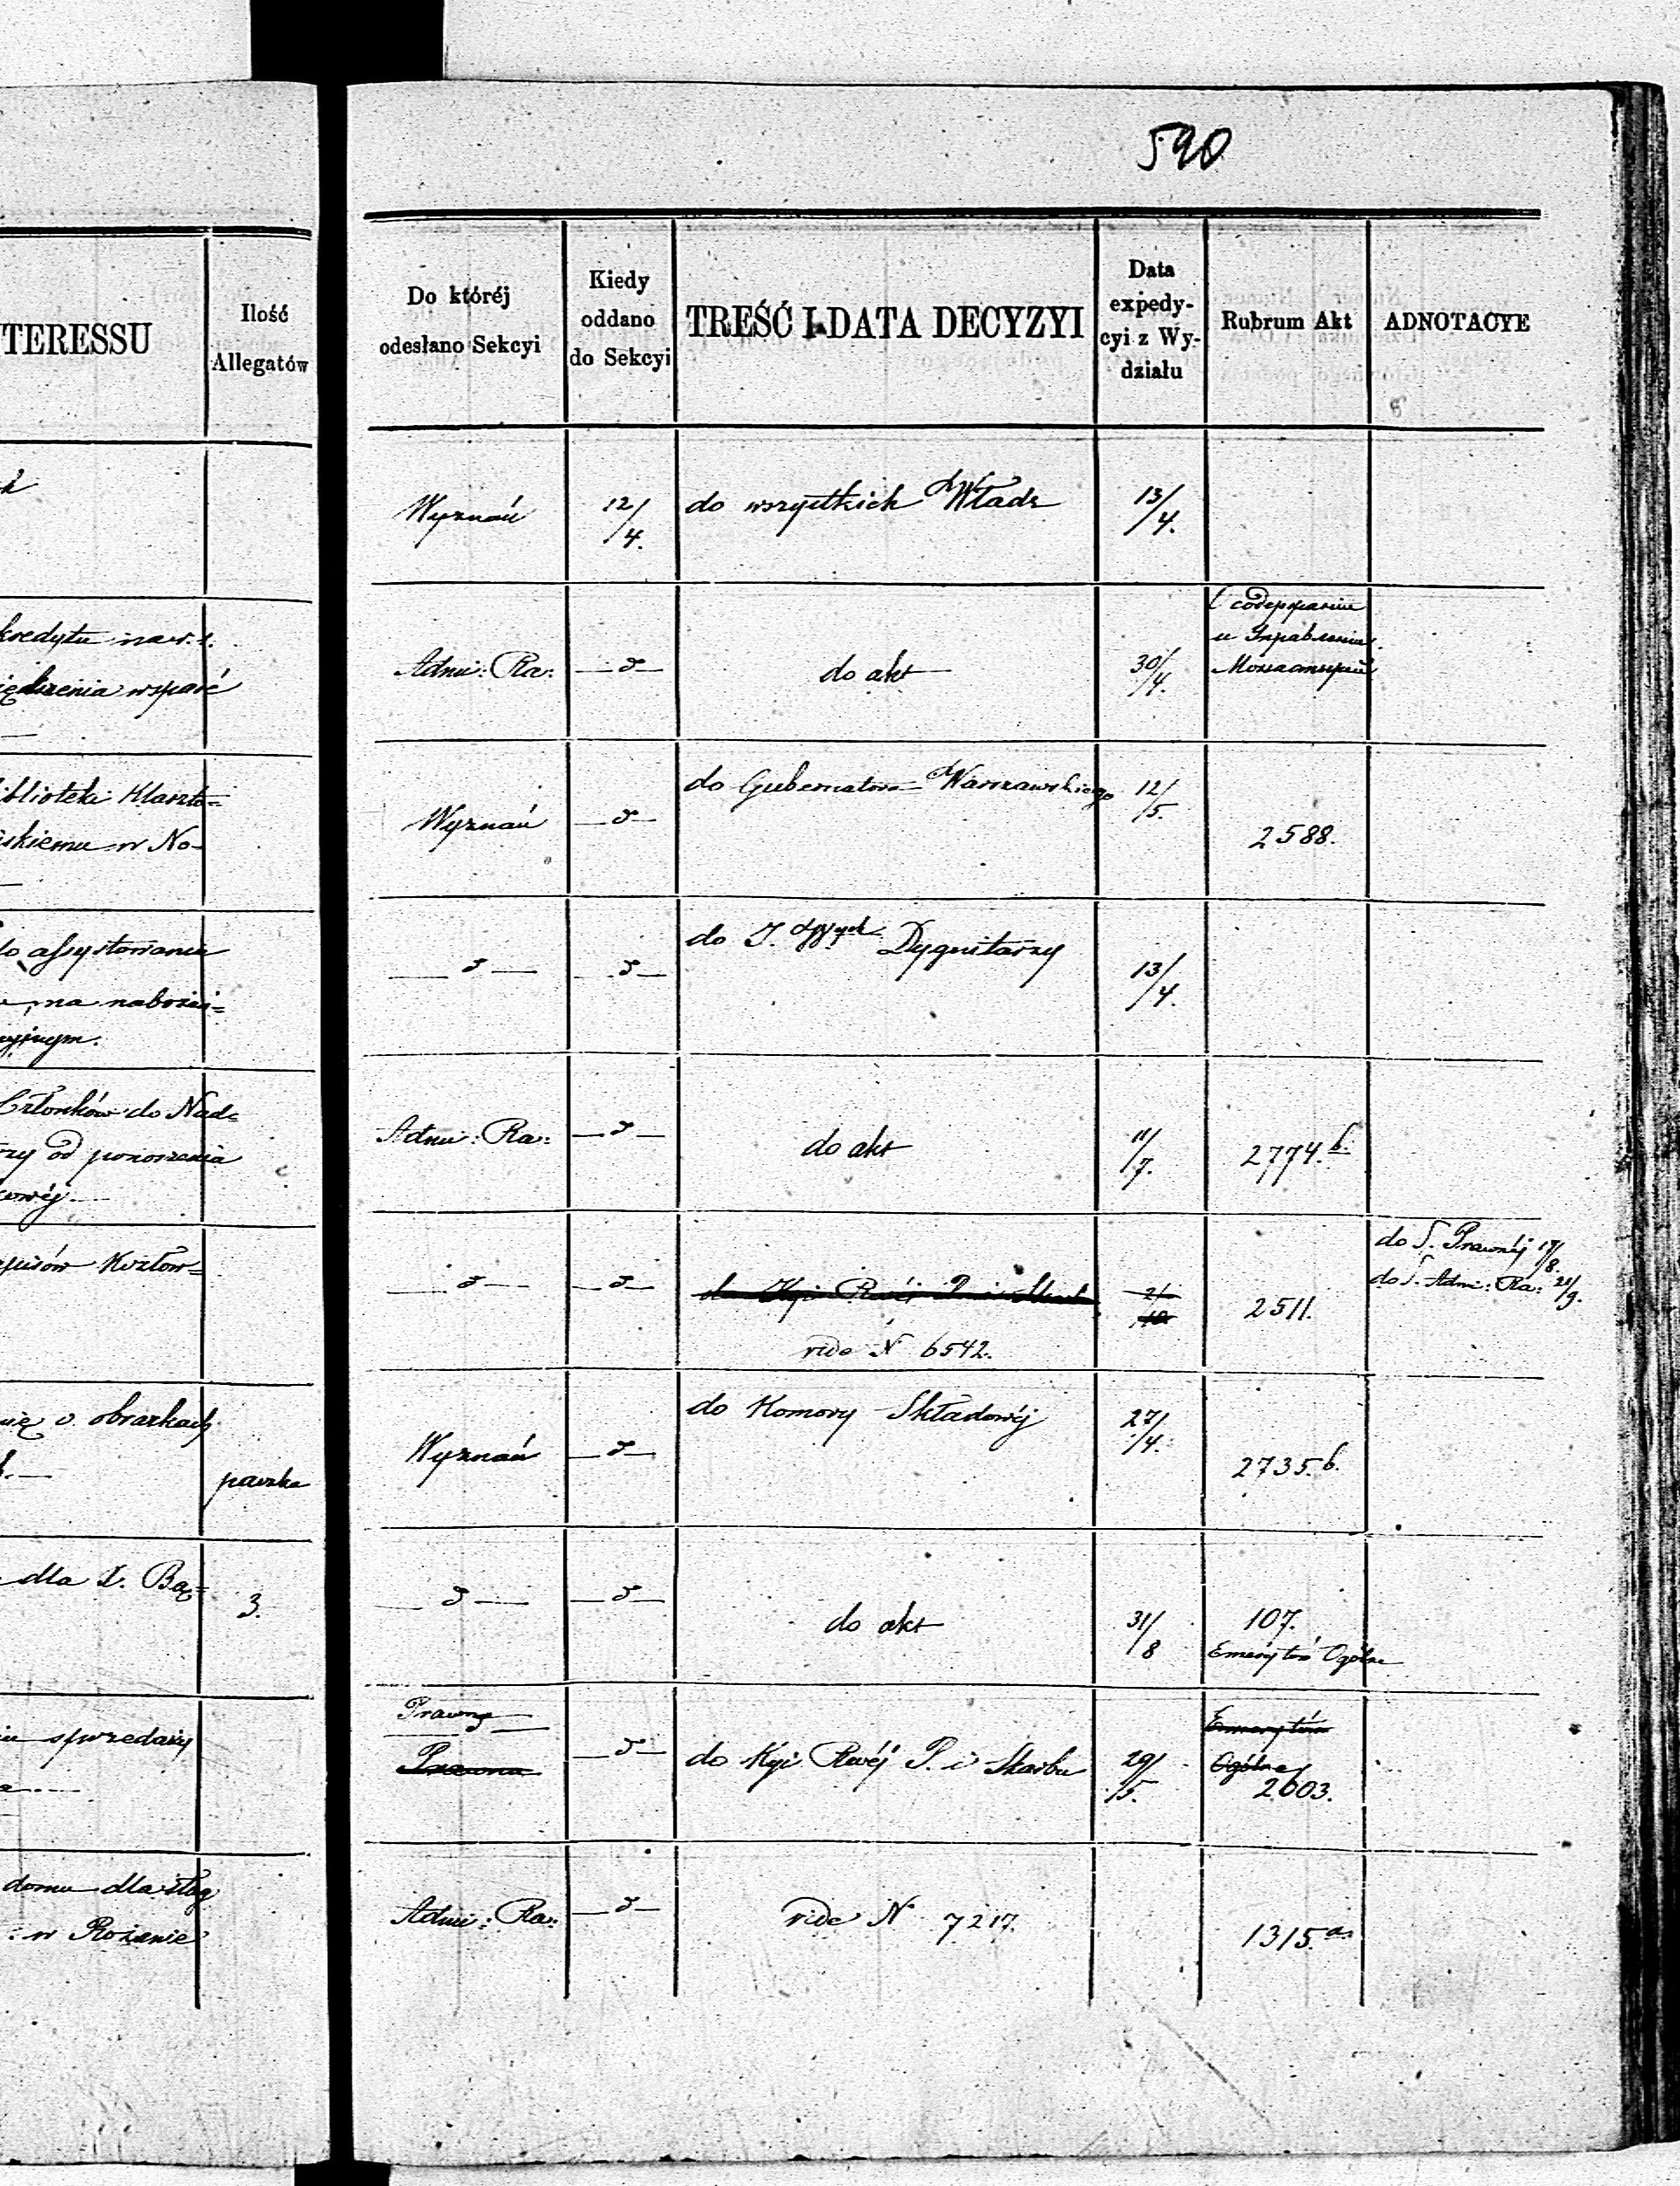 590
TERESSU
Ilość
Allegatów
kredytu na w. s.
wsparć
iblioteki Klaszto=
skiemu w No-
do assystowania
na nabożeń=
yjnym.
Członków do Nad=
rzy od ponoszenia
kowéj.
Kozłow=
o obrazkach
paczka
dla X. Bą=
3.
sprzedaży
domu dla sług
w Rożanie
Do któréj
odesłano Sekcyi
Kiedy
oddano
do Sekcyi
TREŚĆ I DATA DECYZYI
Data
expedy-
cyi z Wy-
działu
Rubrum Akt
ADNOTACYE
Wyznań 12/4. do wszystkich Władz 13/4.
содержание
и Управление
Монастырей
Admi: Ra: —d— do akt 30/4.
do Gubernatora Warszawskiego 12/5.
Wyznań —d— 2588.
—d— —d— do J. Dygnitarzy 13/4.
Admi: Ra: —d— do akt 11/7. 2774.b.
do S. Prawnéj 17/8.
do S. Admi: Ra: 21/9.
—d— —d— 2511.
vide N 6542.
do Komory Składowéj 27/4.
Wyznań —d— 2735.b.
—d— —d— do akt 31/8 107.
Emerytów Ogólne
Prawna
Prawna —d— do Kyi Rwéj P. i Skarbu 29/5.
Emerytów
Ogólne
2603.
Admi: Ra: —d— vide N 7217. 1315.a.